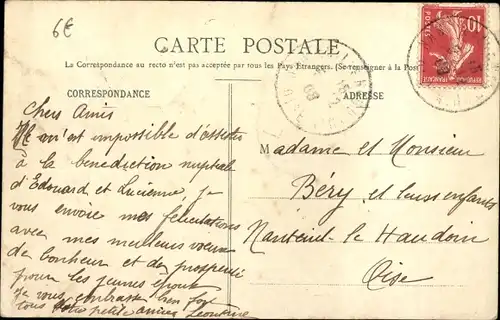 6€
CARTE POSTALE
La Correspondance au recto n'est pas acceptée par tous les Pays Etrangers. (Se renseigner à la Post
CORRESPONDANCE
ADRESSE
10
POSTES
Chers Amis
Il m'est impossible d'assister
à la bénédiction nuptiale
d'Edouard et Lucienne je
vous envoie mes félicitations
avec mes meilleurs vœux
de bonheur et de prospérité
pour les jeunes époux
je vous embrasse bien fort
tous votre petite amie Léontine
Madame et Monsieur
Béry et leurs enfants
Nanteuil-le-Haudoin
Oise